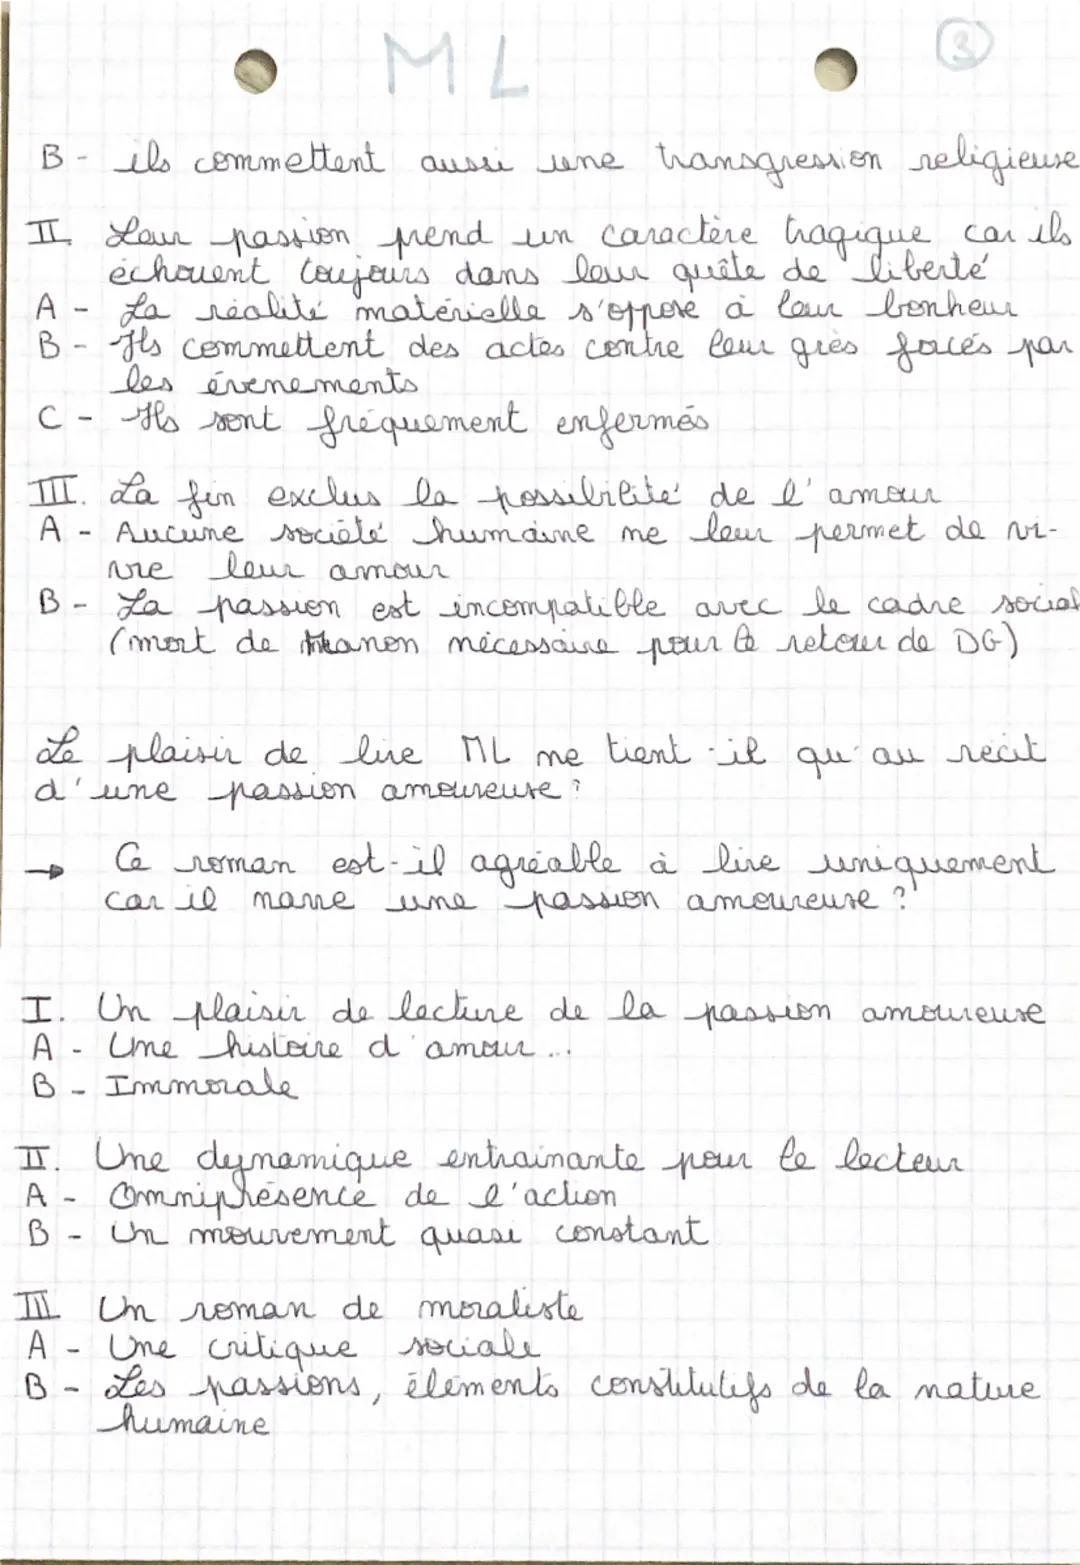 ML
3
B - ils commettent aussi une transgression religieuse
II. Leur passion prend un caractère tragique car ils
échouent toujours dans leur quête de liberté
A - La réalité matérielle s'oppose à leur bonheur
B - Ils commettent des actes contre leur grès forcés par
les évenements
C - Ils sont fréquement enfermés
III. La fin exclus la possibilité de l'amour
A - Aucune société humaine ne leur permet de vi-
vre leur amour
B - La passion est incompatible avec le cadre social
(mort de Manon nécessaire pour le retour de DG)
Le plaisir de lire ML ne tient-il qu'au récit
d'une passion amoureuse ?
→ Ce roman est-il agréable à lire uniquement
car il narre une passion amoureuse ?
I. Un plaisir de lecture de la passion amoureuse
A - Une histoire d'amour...
B - Immorale
II. Une dynamique entrainante pour le lecteur
A - Omniprésence de l'action
B - Un mouvement quasi constant
III Un roman de moraliste
A - Une critique sociale
B - Les passions, éléments constitutifs de la nature
humaine